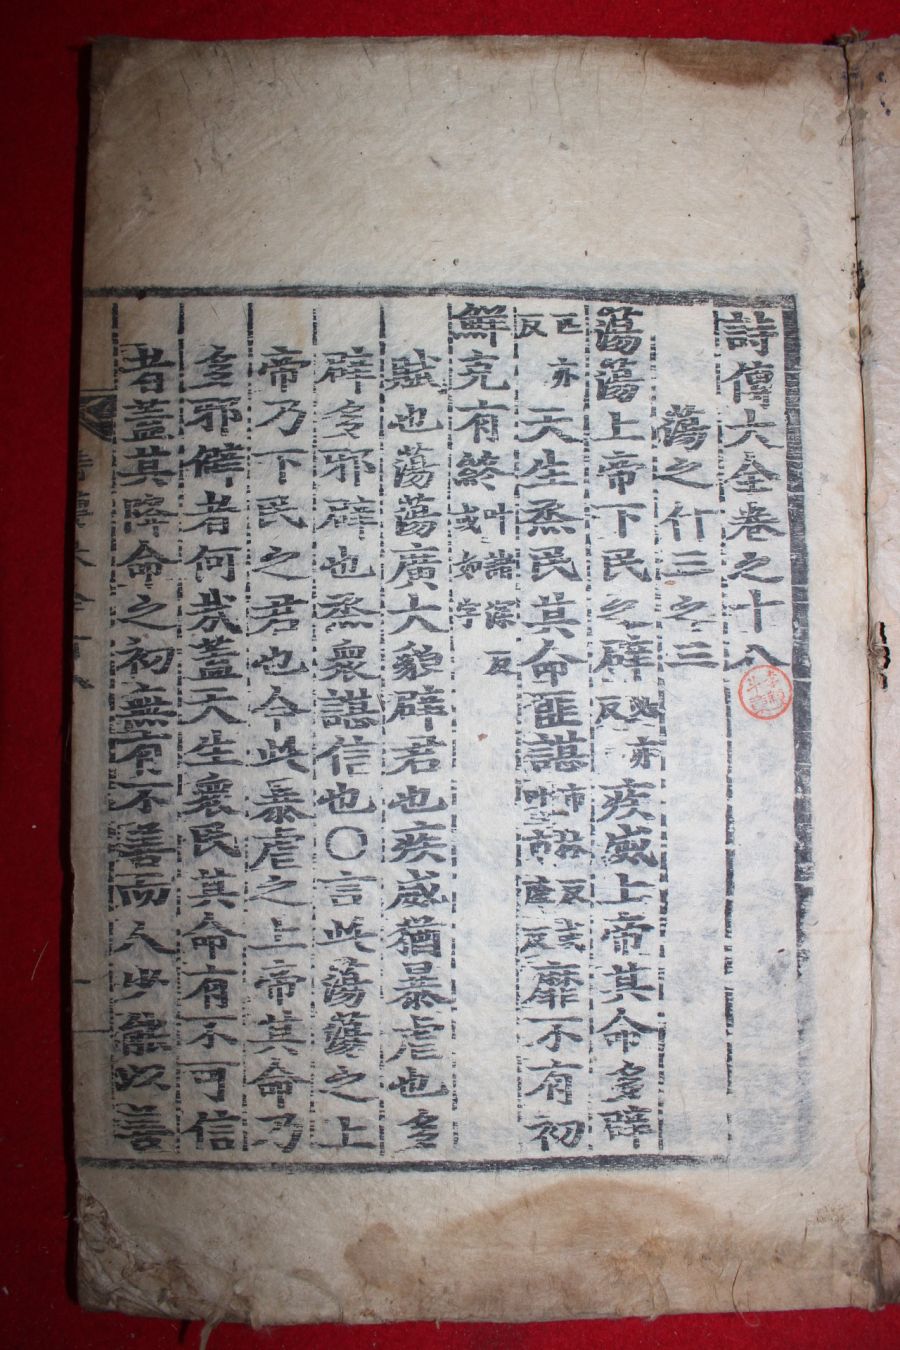 詩傳大全卷之十八
蕩之什三之三
蕩蕩上帝下民之辟必亦反疾威上帝其命多辟
匹亦反天生烝民其命匪諶市林反叶市隆反靡不有初
鮮克有終叶諸深反或如字
賦也蕩蕩廣大貌辟君也疾威猶暴虐也多
辟多邪辟也烝衆諶信也○言此蕩蕩之上
帝乃下民之君也今此暴虐之上帝其命乃
多邪僻者何哉蓋天生衆民其命有不可信
者蓋其降命之初無有不善而人少能以善